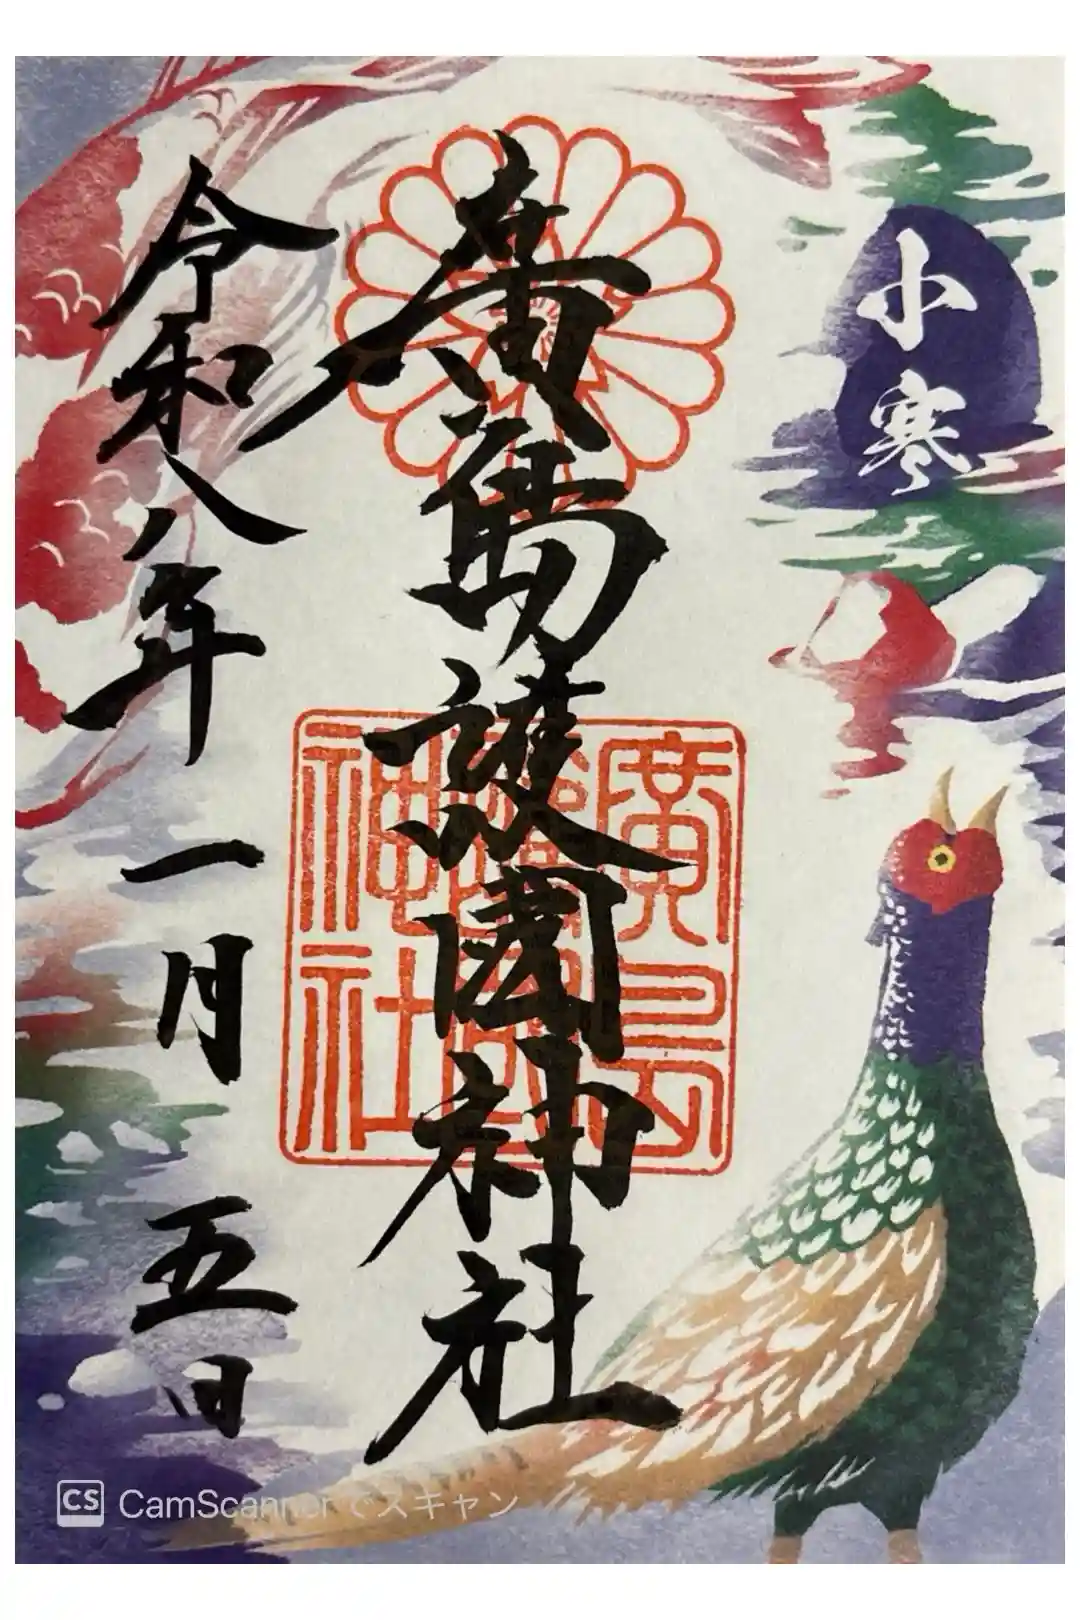 小寒
廣島護國神社
廣島
護國
神社
令和八年一月五日
CS CamScannerでスキャン